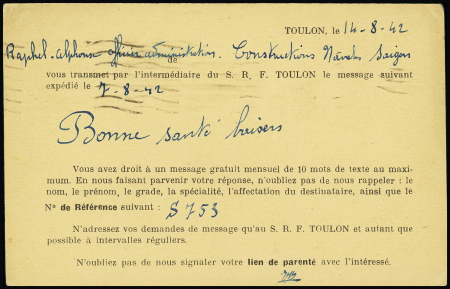 TOULON, le 14-8-42
Raphel. Alphonse officier administration. Constructions Navales Saigon
de
vous transmet par l'intermédiaire du S. R. F. TOULON le message suivant
expédié le 7-8-42
Bonne santé baisers
Vous avez droit à un message gratuit mensuel de 10 mots de texte au maxi-
mum. En nous faisant parvenir votre réponse, n'oubliez pas de nous rappeler : le
nom, le prénom, le grade, la spécialité, l'affectation du destinataire, ainsi que le
N° de Référence suivant : S 753
N'adressez vos demandes de message qu'au S. R. F. TOULON et autant que
possible à intervalles réguliers.
N'oubliez pas de nous signaler votre lien de parenté avec l'intéressé.